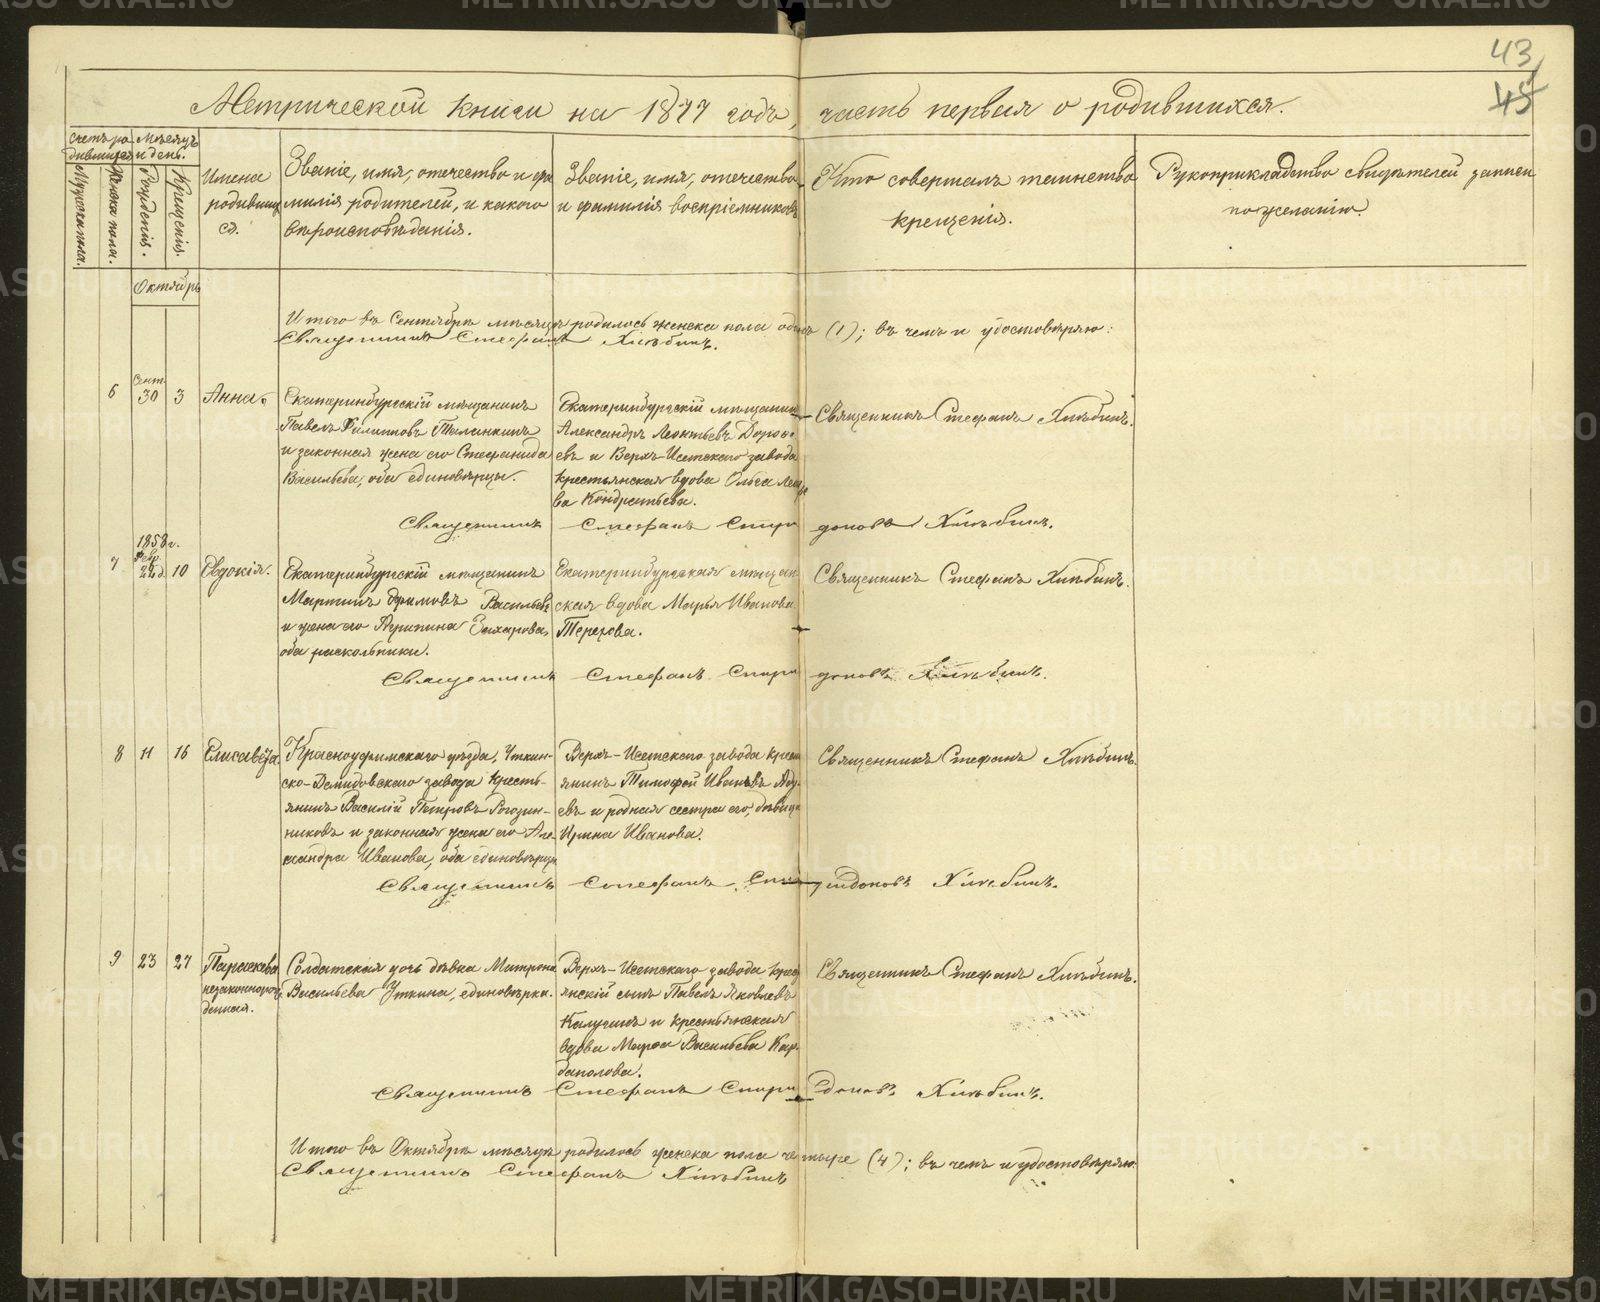 43
45
Метрической книги на 1877 годъ, часть первая о родившихся.
Счетъ ро
дившихся
Мѣсяцъ
и день.
Мужеска пола.
Женска пола.
Рожденія.
Крещенія.
Имена
родивших
ся.
Званіе, имя, отечество и фа
милія родителей, и какого
вѣроисповѣданія.
Званіе, имя, отечество
и фамилія воспріемниковъ
Кто совершалъ таинство
крещенія.
Рукоприкладство свидѣтелей записи
по желанію.
Октябрь
Итого въ Сентябрѣ мѣсяцѣ родилось женска пола одна (1); въ чемъ и удостовѣряю:
Священникъ Стефанъ Хлѣбинъ.
6
Сент.
30
3
Анна.
Екатеринбургскій мѣщанинъ
Павелъ Филипповъ Таланкинъ
и законная жена его Стефанида
Васильева, оба единовѣрцы.
Екатеринбургскій мѣщанинъ
Александръ Леонтьевъ
евъ и Верхъ-Исетскаго завода
крестьянская вдова Ольга
ва Кондратьева.
Священникъ Стефанъ Хлѣбинъ.
Священникъ Стефанъ Спиридоновъ Хлѣбинъ.
7
1858 г.
Февр.
10
Евдокія.
Екатеринбургскій мѣщанинъ
Мартинъ Ефимовъ Васильевъ
и жена его Агрипина Захарова,
оба раскольники.
Екатеринбургская мѣщан
ская вдова Марья Иванова
Терехова.
Священникъ Стефанъ Хлѣбинъ.
Священникъ Стефанъ Спиридоновъ Хлѣбинъ.
8
11
16
Елисавета
Красноуфимскаго уѣзда, Уткин-
ско-Демидовскаго завода кресть-
янинъ Василій Петровъ Рогозин-
никовъ и законная жена его Але-
ксандра Иванова, оба единовѣрцы
Верхъ-Исетскаго завода крест
янинъ Тимофей Ивановъ
евъ и родная сестра его, дѣвица
Ирина Иванова.
Священникъ Стефанъ Хлѣбинъ.
Священникъ Стефанъ Спиридоновъ Хлѣбинъ.
9
23
27
Параскева
незаконнорож
денная.
Солдатская дочь дѣвка Матрона
Васильева Уткина, единовѣрка.
Верхъ-Исетскаго завода крест
янскій сынъ Павелъ Яковлевъ
Калугинъ и крестьянская
вдова Марѳа Васильева Кар-
баполова.
Священникъ Стефанъ Хлѣбинъ.
Священникъ Стефанъ Спиридоновъ Хлѣбинъ.
Итого въ Октябрѣ мѣсяцѣ родилось женска пола четыре (4); въ чемъ и удостовѣряю
Священникъ Стефанъ Хлѣбинъ
METRIKI.GASO-URAL.RU